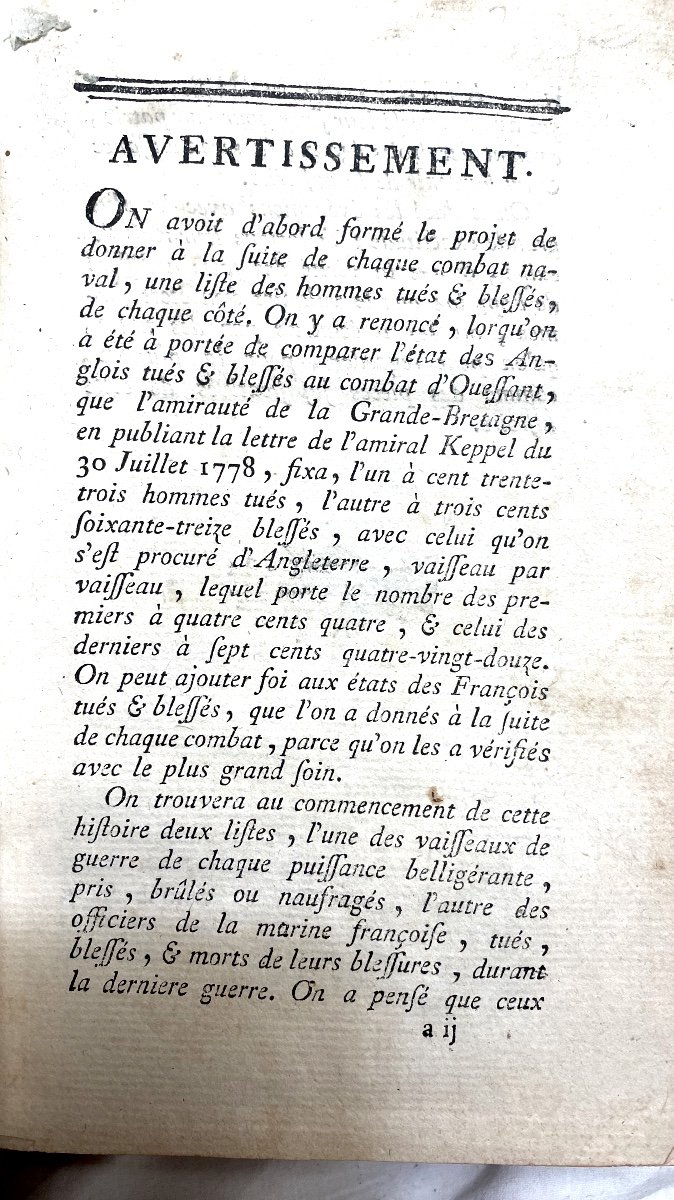 AVERTISSEMENT.
ON avoit d'abord formé le projet de
donner à la ſuite de chaque combat na-
val, une liſte des hommes tués & bleſſés,
de chaque côté. On y a renoncé, lorqu'on
a été à portée de comparer l'état des An-
glois tués & bleſſés au combat d'Oueſſant,
que l'amirauté de la Grande-Bretagne,
en publiant la lettre de l'amiral Keppel du
30 Juillet 1778, fixa, l'un à cent trente-
trois hommes tués, l'autre à trois cents
ſoixante-treize bleſſés, avec celui qu'on
s'eſt procuré d'Angleterre, vaiſſeau par
vaiſſeau, lequel porte le nombre des pre-
miers à quatre cents quatre, & celui des
derniers à ſept cents quatre-vingt-douze.
On peut ajouter foi aux états des François
tués & bleſſés, que l'on a donnés à la ſuite
de chaque combat, parce qu'on les a vérifiés
avec le plus grand ſoin.
On trouvera au commencement de cette
hiſtoire deux liſtes, l'une des vaiſſeaux de
guerre de chaque puiſſance belligérante,
pris, brûlés ou naufragés, l'autre des
officiers de la marine françoiſe, tués,
bleſſés, & morts de leurs bleſſures, durant
la derniere guerre. On a penſé que ceux
a ij